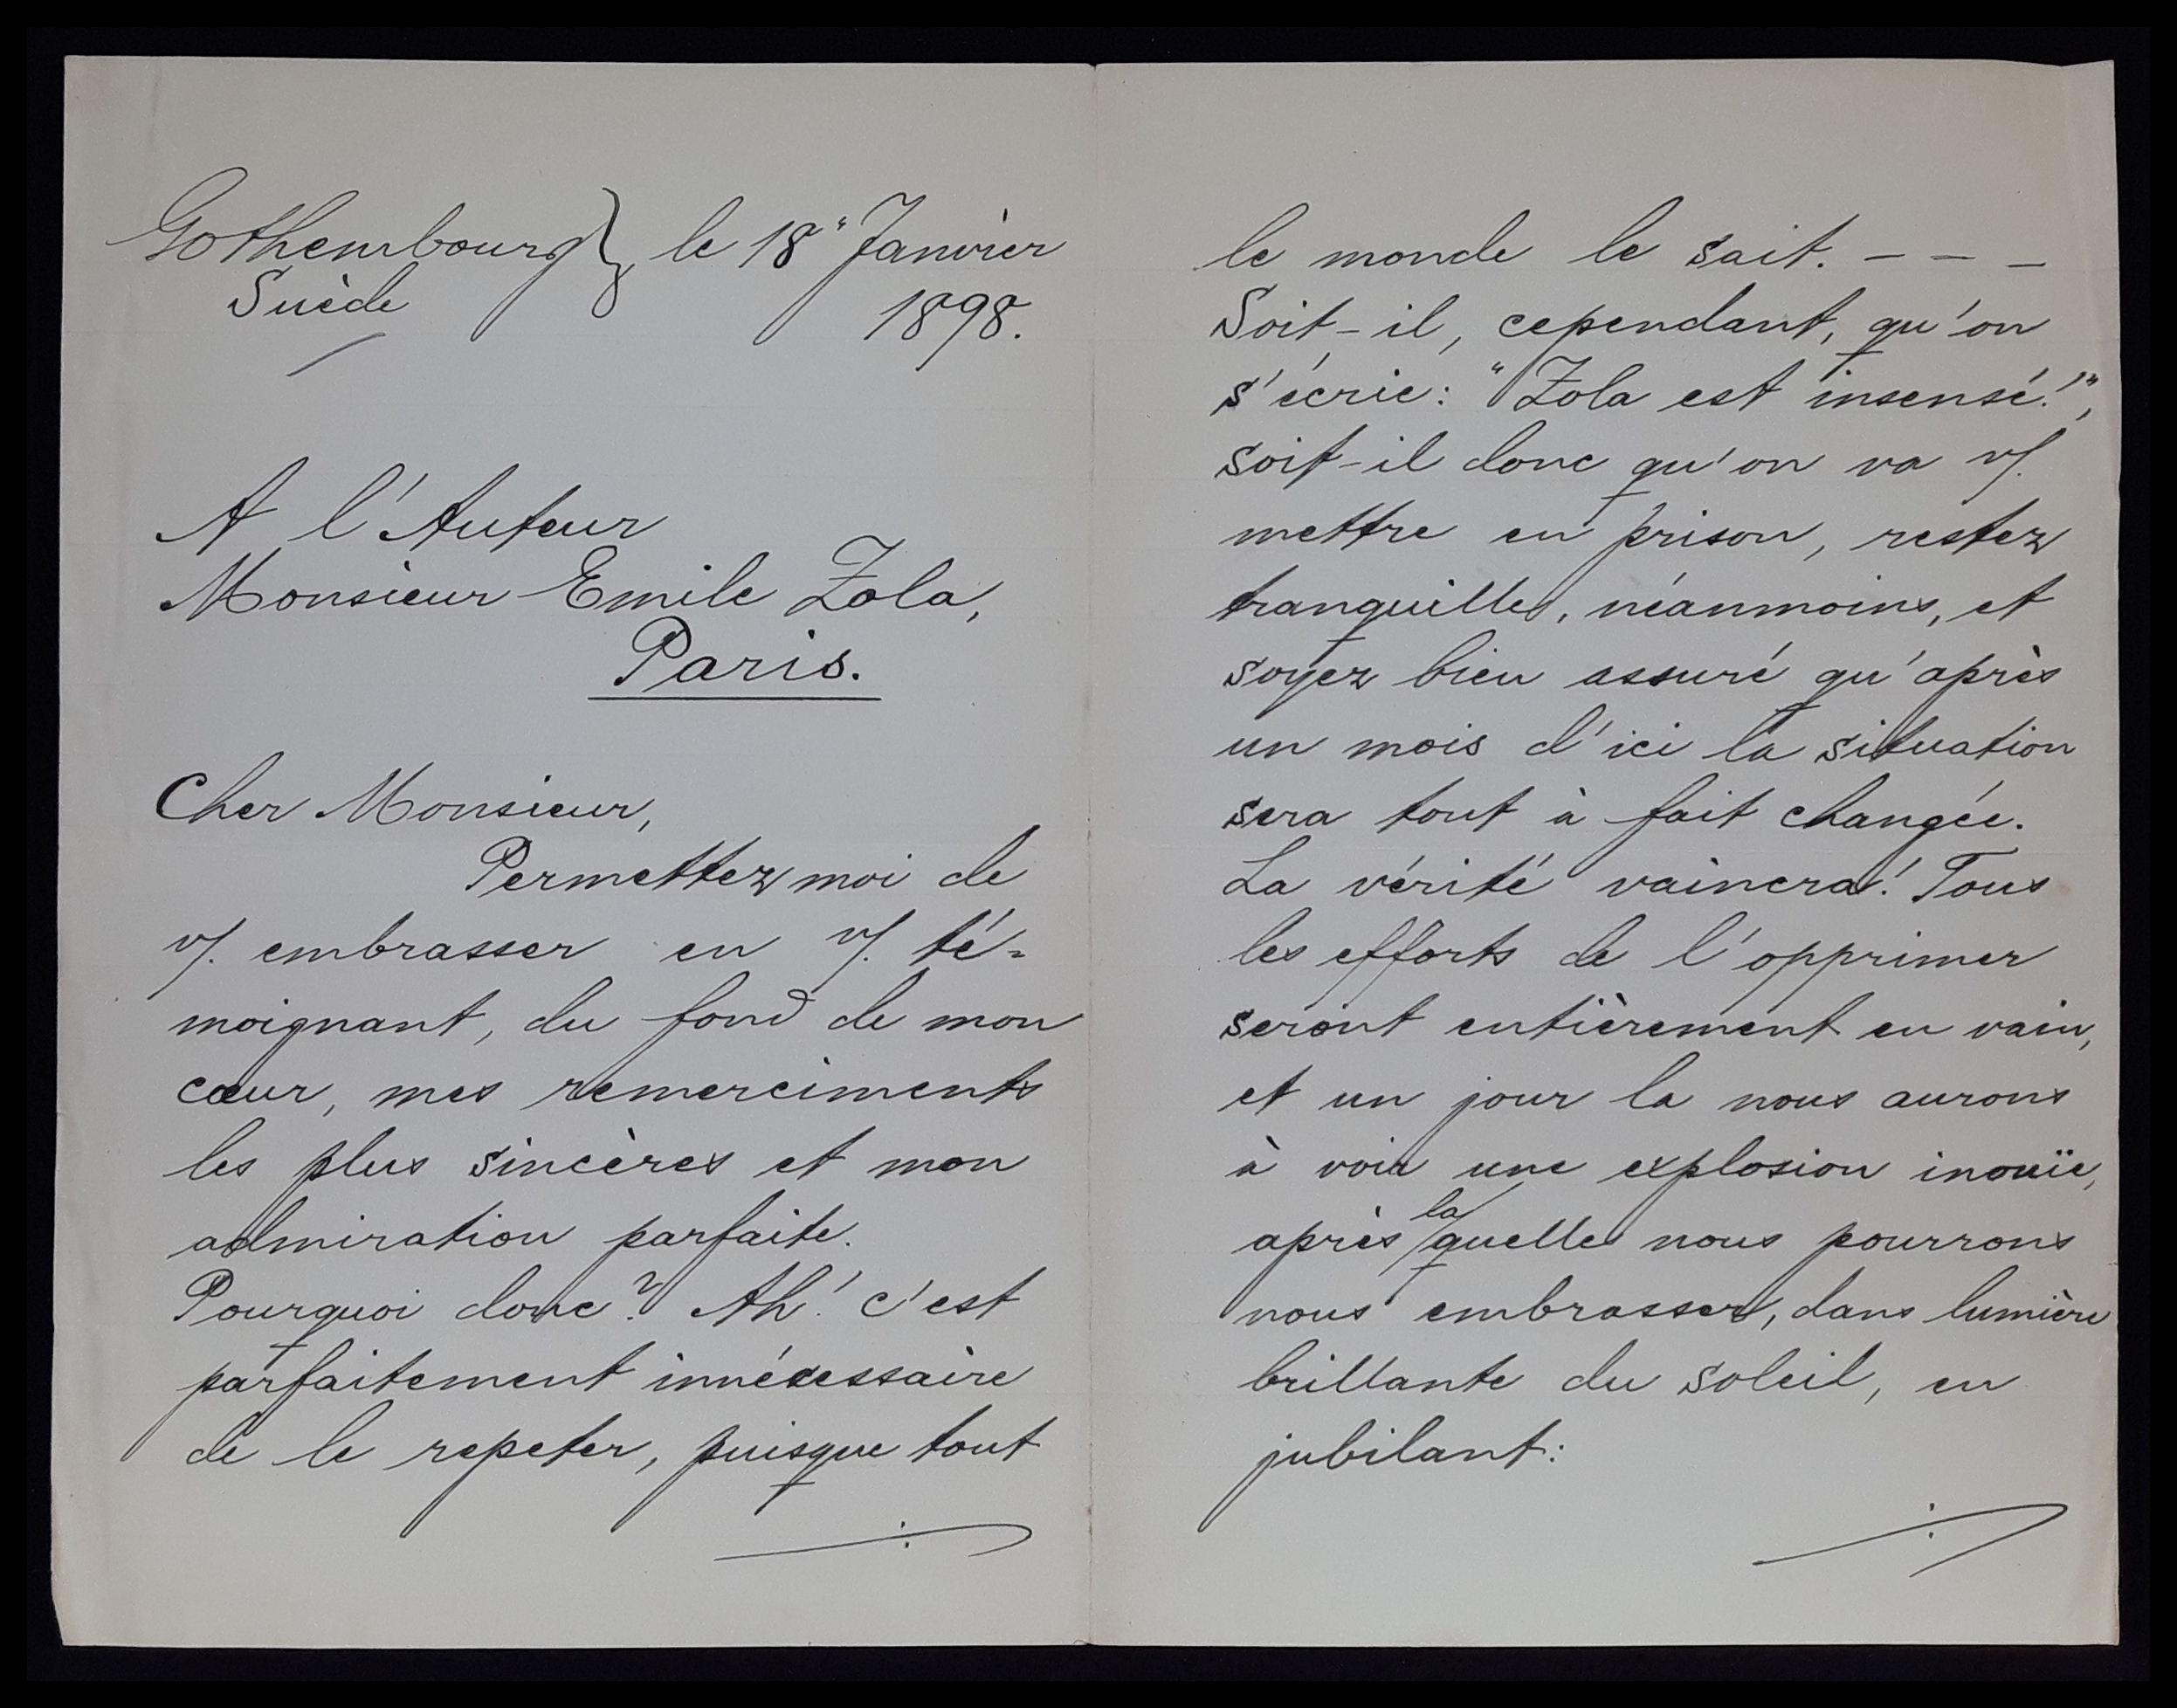 Gothembourg } le 18" Janvier
Suède
1898.
A l'Auteur
Monsieur Emile Zola,
Paris.
Cher Monsieur,
Permettez moi de
v/. embrasser en v/. té=
moignant, du fond de mon
cœur, mes remerciments
les plus sincères et mon
admiration parfaite.
Pourquoi donc? Ah! c'est
parfaitement innécessaire
de le repeter, puisque tout
le monde le sait. – – –
Soit-il, cependant, qu'on
s'écrie: "Zola est insensé!",
soit-il donc qu'on va v/.
mettre en prison, restez
tranquille, néanmoins, et
soyez bien assuré qu'après
un mois d'ici la situation
sera tout à fait changée.
La vérité vaincra! Tous
les efforts de l'opprimer
seront entièrement en vain,
et un jour la nous aurons
à voir une explosion inouïe,
après laquelle nous pourrons
nous embrasser, dans lumière
brillante du soleil, en
jubilant: